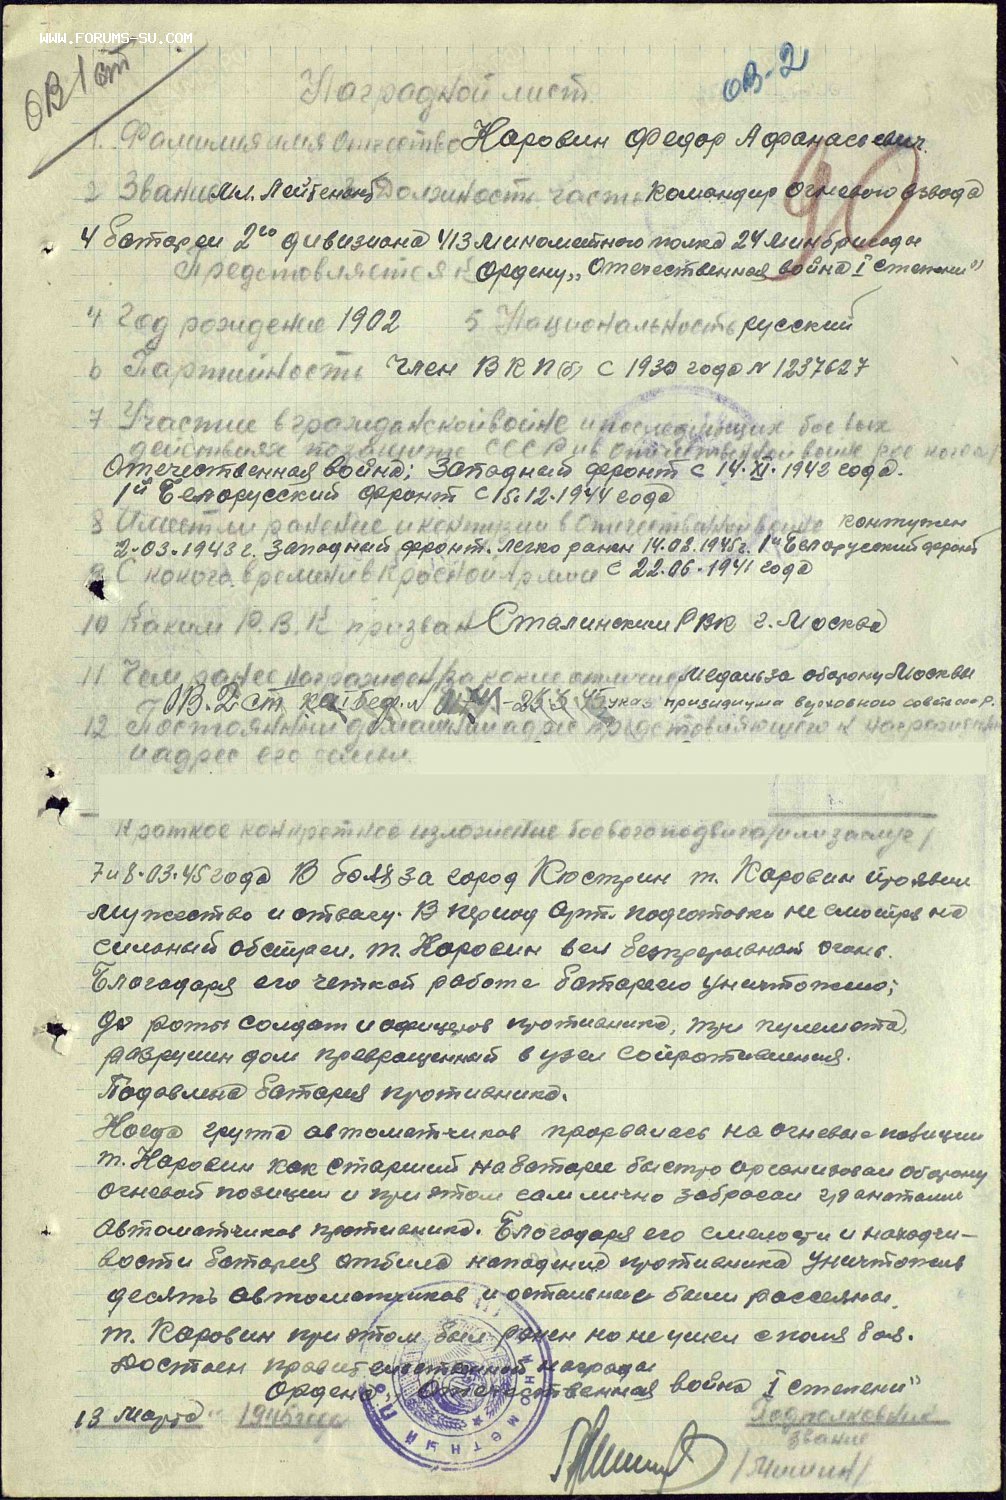 WWW.FORUMS-SU.COM
ОВ 1 ст
ОВ-2
Наградной лист
1. Фамилия имя отчество Каровин Федор Афанасьевич.
2 Звание Мл. Лейтенант 3 Должность часть Командир огневого взвода
4 батареи 2го дивизиона 413 минометного полка 24 минбригады
Представляется к Ордену „Отечественная война I степени"
4 Год рождение 1902 5 Национальность русский
6 Партийность Член ВКП(б) с 1930 года № 1237627
7 Участие в гражданской войне и последующих боевых
действиях по защите СССР и в отечественной войне
Отечественная война; Западный фронт с 14.XI.1942 года.
1й Белорусский фронт с 15.12.1944 года
8 Имеет ли ранение и контузии в Отечественной войне контужен
2.03.1943 г. Западный фронт. легко ранен 14.03.1945 г. 1й Белорусский фронт
9 С какого времени в Красной Армии с 22.06.1941 года
10 Каким Р.В.К призван Сталинским РВК г. Москва
11 Чем ранее награжден/за какие отличия медаль за оборону Москвы
ОВ.2 ст указ президиума верховного совета
12 Постоянный домашний адрес представляющего к награждению
и адрес его семьи
Краткое конкретное изложение боевого подвига/или заслуг/
7 и 8.03.45 года В боях за город Кюстрин т. Каровин проявил
мужество и отвагу. В период арт. подготовки не смотря на
сильный обстрел. т. Каровин вел безпрерывный огонь.
Благодаря его четкой работе батареею уничтожено;
до роты солдат и офицеров противника, три пулемета,
разрушен дом превращенный в узел сопротивления.
Подавлена батарея противника.
Когда группа автоматчиков прорвалась на огневые позиции
т. Каровин как старший на батарее быстро организовал оборону
огневой позиции и при этом сам лично забросал гранатами
автоматчиков противника. Благодаря его смелости и находчи-
вости батарея отбила нападение противника уничтожив
десять автоматчиков и остальные были рассеяны.
т. Каровин при этом был ранен но не ушел с поля боя.
Достоен правительственной награды
Ордена „Отечественная война I степени"
13 марта 1945 года
Подполковник
звание
/Мишин/